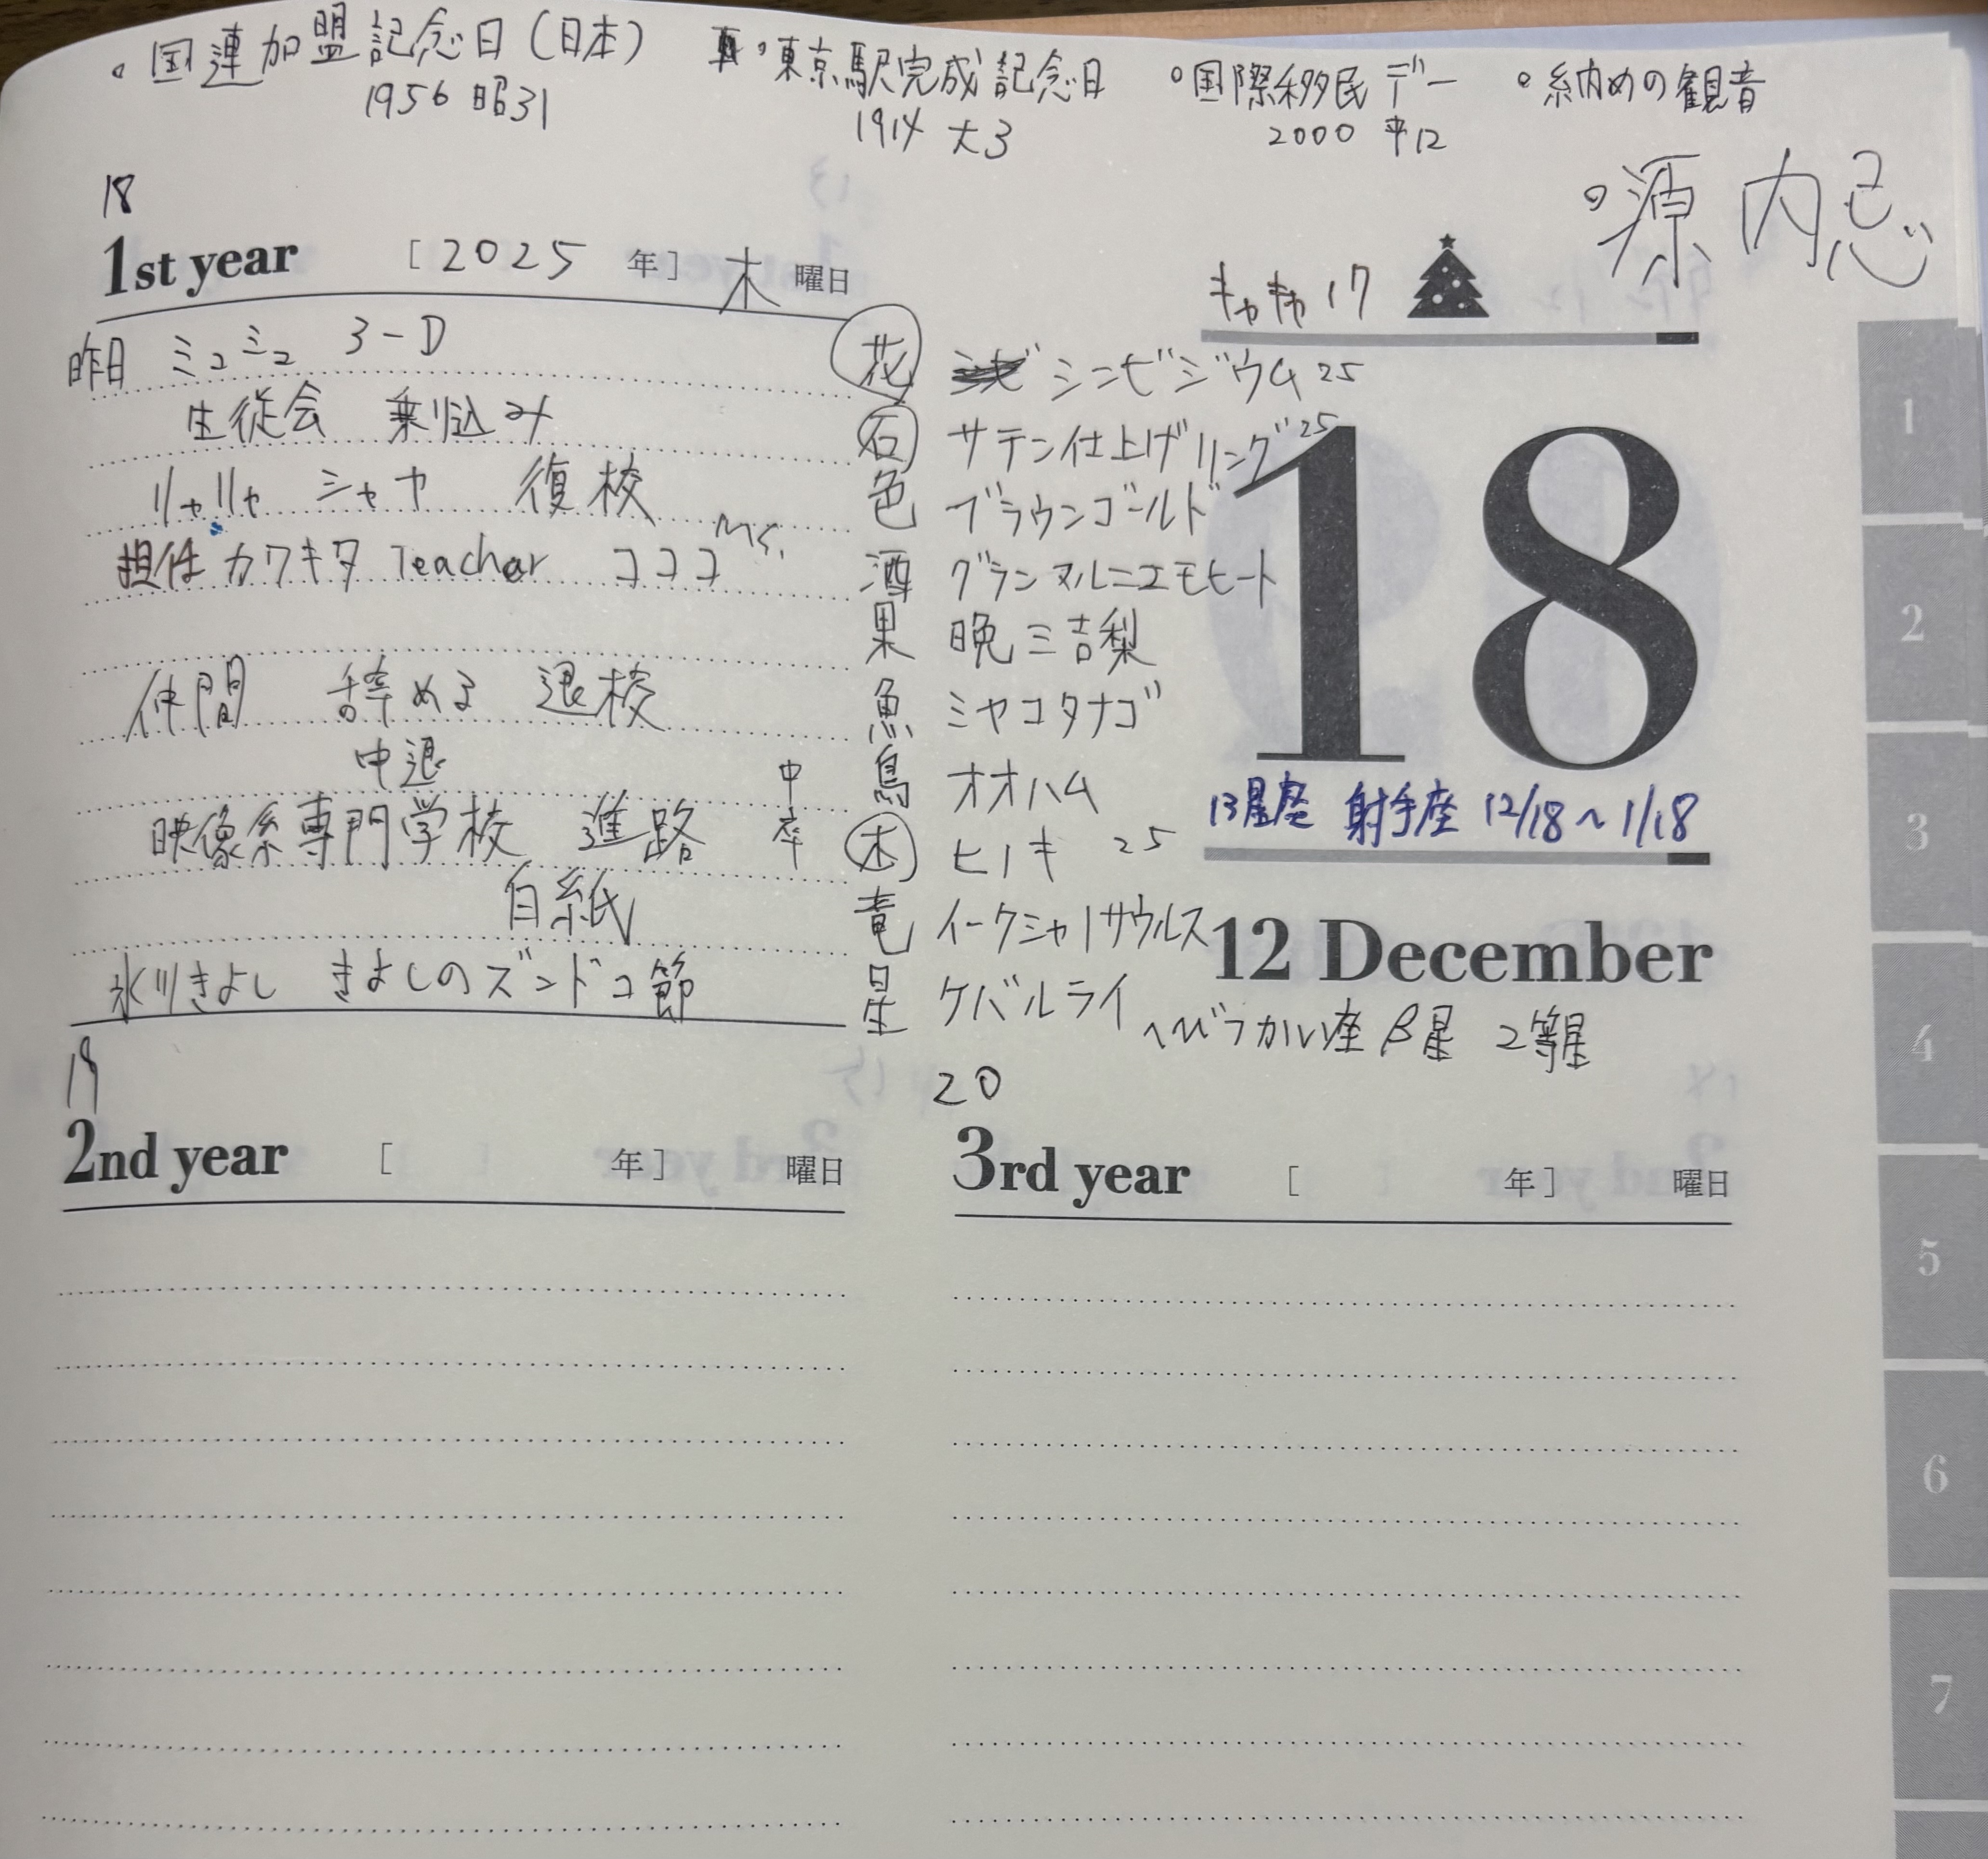 。国連加盟記念日(日本) 。東京駅完成記念日 。国際移民デー 。納めの観音
1956 昭31 1914 大3 2000 平12
。源内忌
18
1st year [2025 年] 木 曜日
昨日 ミュミュ 3-D
生徒会 乗り込み
リャリャ シャヤ 復校
担任 カワキタ Teachar コココ Ms.
仲間 辞める 退校
中退
映像系専門学校 進路 中卒
白紙
氷川きよし きよしのズンドコ節
キャキャ 17
花 シンビジウム 25
石 サテン仕上げリング 25
色 ブラウンゴールド
酒 グランマルニエモヒート
果 晩三吉梨
魚 ミヤコタナゴ
鳥 オオハム
木 ヒノキ 25
竜 イークシャノサウルス
星 ケバルライ へびつかい座 β星 2等星
18
13星座 射手座 12/18~1/18
12 December
19
2nd year [ 年] 曜日
20
3rd year [ 年] 曜日
1
2
3
4
5
6
7